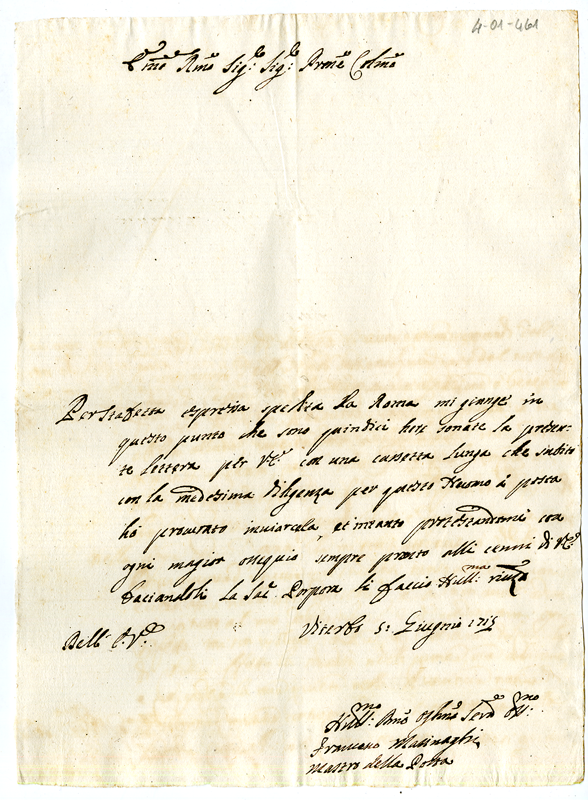 4-01-461
Em͠o Rm͠o Sig:re Sig:re Prone Colmo
Per stafetta espressa spedita da Roma mi giunge in
questo punto che sono quindici hore sonate la presen-
te lettera per VE. con una cassetta lunga che subito
con la medesima diligenza per questo Huomo à posta
ho procurato inviarcela, et intanto protestandomi con
ogni magior ossequio sempre pronto alli cenni di VE.
baciandoli la Sac. Porpora li faccio Hull:ma riva
Viterbo 5: Giugnio 1715
Di VE.
Hull:mo Servo
Francesco
Mastro della Posta